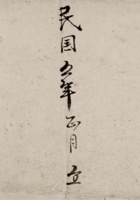 民国五年正月立